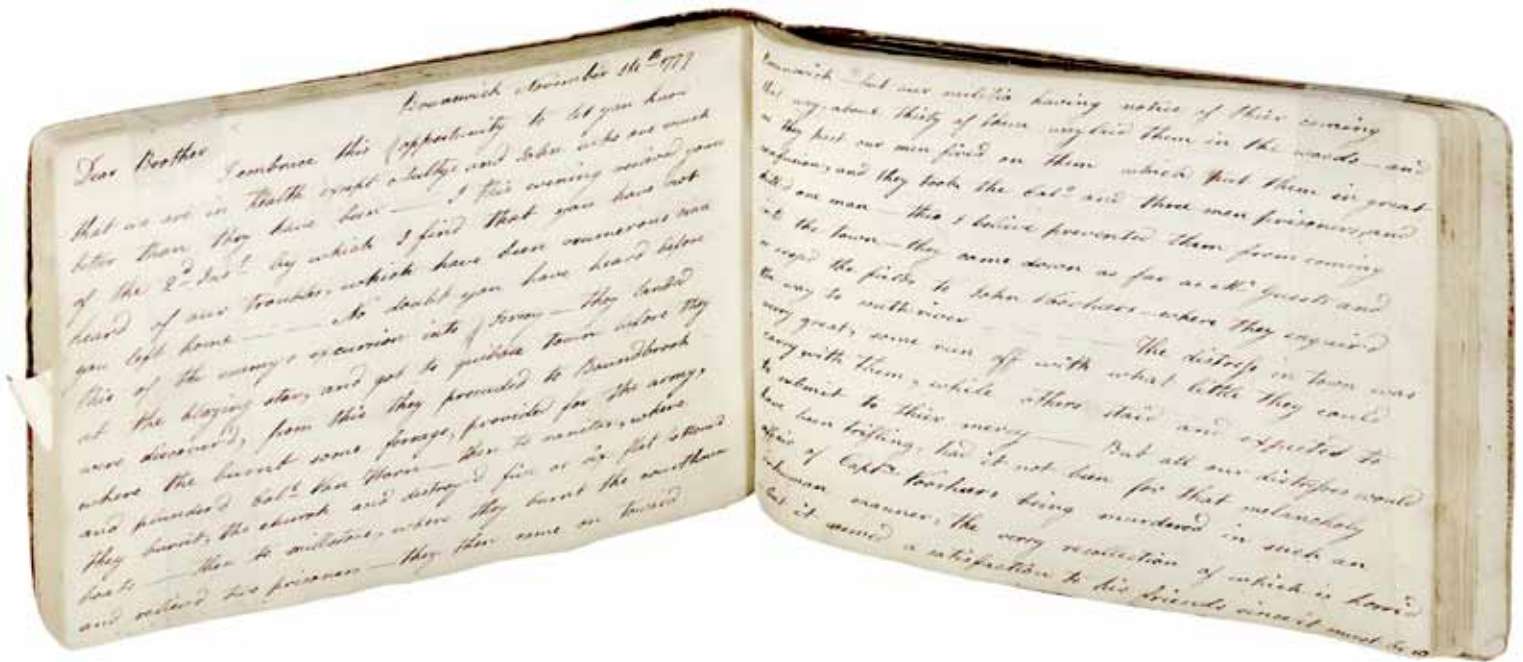 Brunswick November 14th 1779
Dear Brother
I embrace this opportunity to let you know
that we are in health except and John who are much
better than they have been — I this evening received your
of the 2d Inst by which I find that you have not
heard of our troubles, which have been numerous since
you left home — — No doubt you have heard before
this of the enemys excursion into Jersey — they landed
at the blazing star, and got to quibble town before they
were discover'd, from this they proceeded to Boundbrook
where the burnt some forrage, provided for the army,
and plunder'd Col.l Van Horn — then to where
they burnt, the church and destroy'd five or six flat bottom'd
boats — then to millstone, where they burnt the courthouse
and reliev'd prisoners — they then came on toward
Brunswick — but our militia having notice of thier coming
this way, about thirty of them them in the woods — and
as they past our men fired on them which put them in great
confusion, and they took the Col.l and three men prisoners, and
kill'd one man — this I believe prevented them from coming
into the town — they came down as far as Mr Guests and
the fields to John Voorhees — where they enquir'd
the way to south river — — — The distress in town was
very great, some run off with what little they could
carry with them, while others staid and expected to
to submit to thier mercy — But all our distresses would
have been trifling, had it not been for that melancholy
affair of Captn Voorhees being murdered in such an
inhuman manner, the very recollection of which is horrid
but it seemed a satisfaction to his friends since it must be so